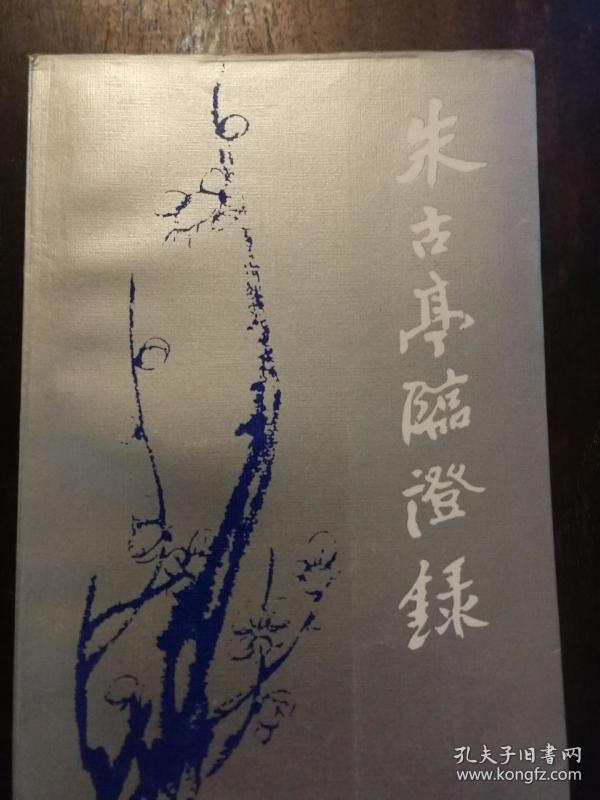 朱古亭臨證録
孔夫子旧書网
www.kongfz.com